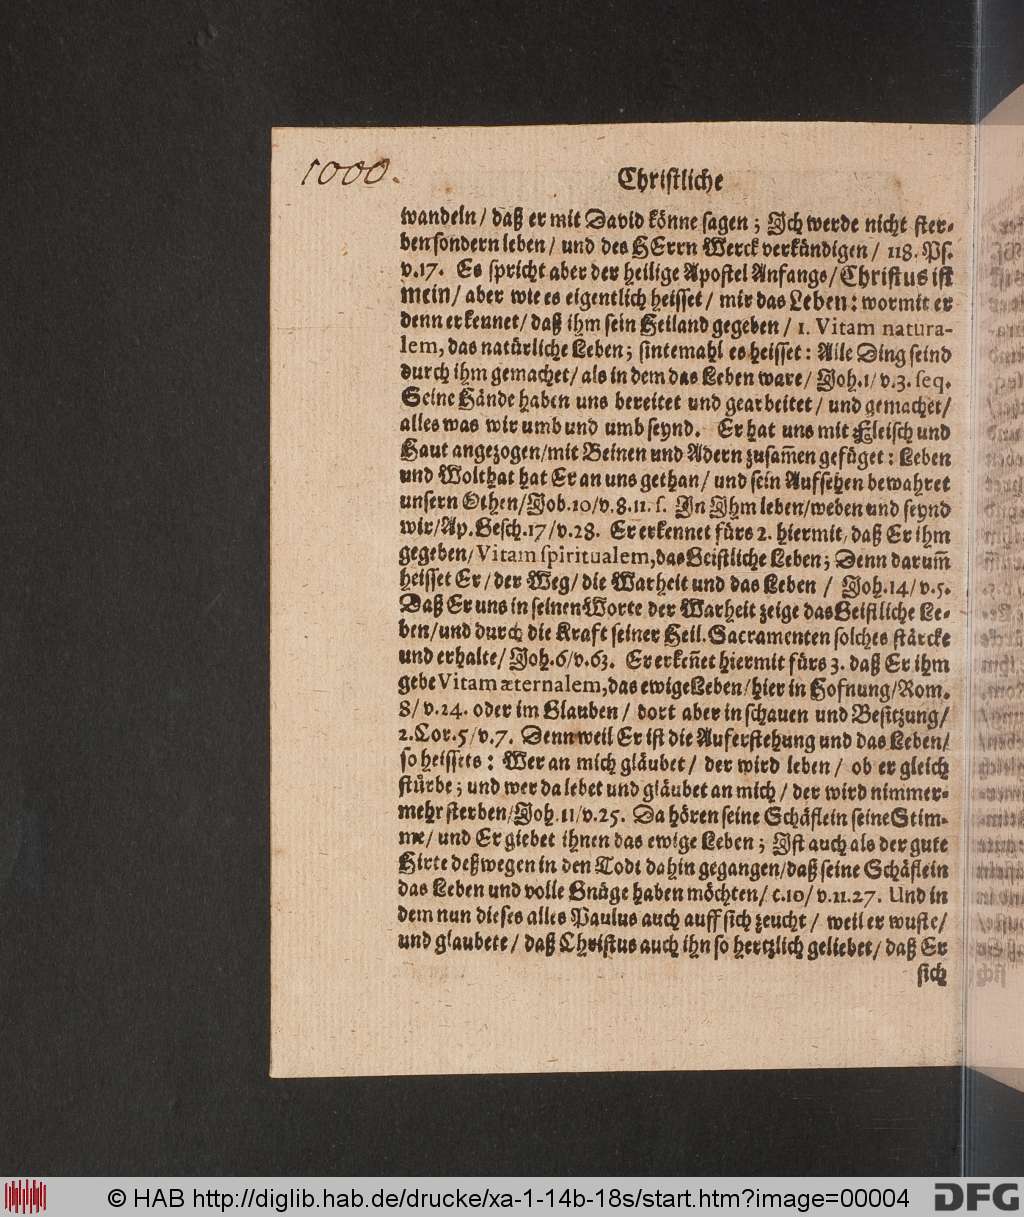 1000.
Christliche
wandeln / daß er mit David könne sagen ; Jch werde nicht ster-
ben sondern leben / und des HErrn Werck verkündigen / 118. Ps.
v.17. Es spricht aber der heilige Apostel Anfangs / Christus ist
mein / aber wie es eigentlich heisset / mir das Leben : wormit er
denn erkennet / daß ihm sein Heiland gegeben / 1. Vitam natura-
lem, das natürliche Leben; sintemahl es heisset : Alle Ding seind
durch ihm gemachet / als in dem das Leben ware / Joh.1/v.3. seq.
Seine Hände haben uns bereitet und gearbeitet / und gemachet /
alles was wir umb und umb seynd. Er hat uns mit Fleisch und
Haut angezogen / mit Beinen und Adern zusam̃en gefüget : Leben
und Wolthat hat Er an uns gethan / und sein Aufsehen bewahret
unsern Othen / Job.10/v.8.11. s. Jn Jhm leben / weben und seynd
wir / Ap. Gesch.17/v.28. Er erkennet fürs 2. hiermit, daß Er ihm
gegeben / Vitam spiritualem, das Geistliche Leben; Denn darum̃
heisset Er / der Weg / die Warheit und das Leben / Joh.14/v.5.
Daß Er uns in seinen Worte der Warheit zeige das Geistliche Le-
ben / und durch die Kraft seiner Heil. Sacramenten solches stärcke
und erhalte / Joh.6/v.63. Er erkeñet hiermit fürs 3. daß Er ihm
gebe Vitam æternalem, das ewige Leben / hier in Hofnung / Rom.
8/v.24. oder im Glauben / dort aber in schauen und Besitzung /
2.Cor.5/v.7. Denn weil Er ist die Auferstehung und das Leben /
so heissets : Wer an mich gläubet / der wird leben / ob er gleich
stürbe ; und wer da lebet und gläubet an mich / der wird nimmer-
mehr sterben / Joh.11/v.25. Da hören seine Schäflein seine Stim-
me / und Er giebet ihnen das ewige Leben ; Jst auch als der gute
Hirte deßwegen in den Todt dahin gegangen / daß seine Schäflein
das Leben und volle Gnüge haben möchten / c.10/v.11.27. Und in
dem nun dieses alles Paulus auch auff sich zeucht / weil er wuste /
und glaubete / daß Christus auch ihn so hertzlich geliebet / daß Er
sich
© HAB http://diglib.hab.de/drucke/xa-1-14b-18s/start.htm?image=00004
DFG